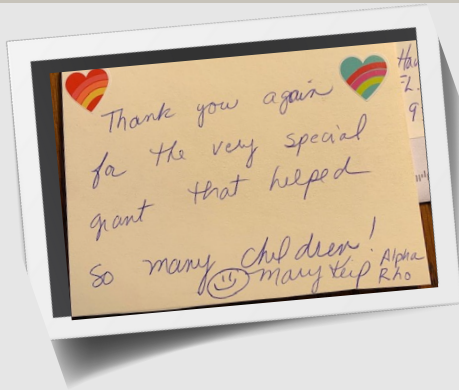 Thank you again
for the very special
grant that helped
so many children!
Mary Keif Alpha
Rho
Hav
FL.
9